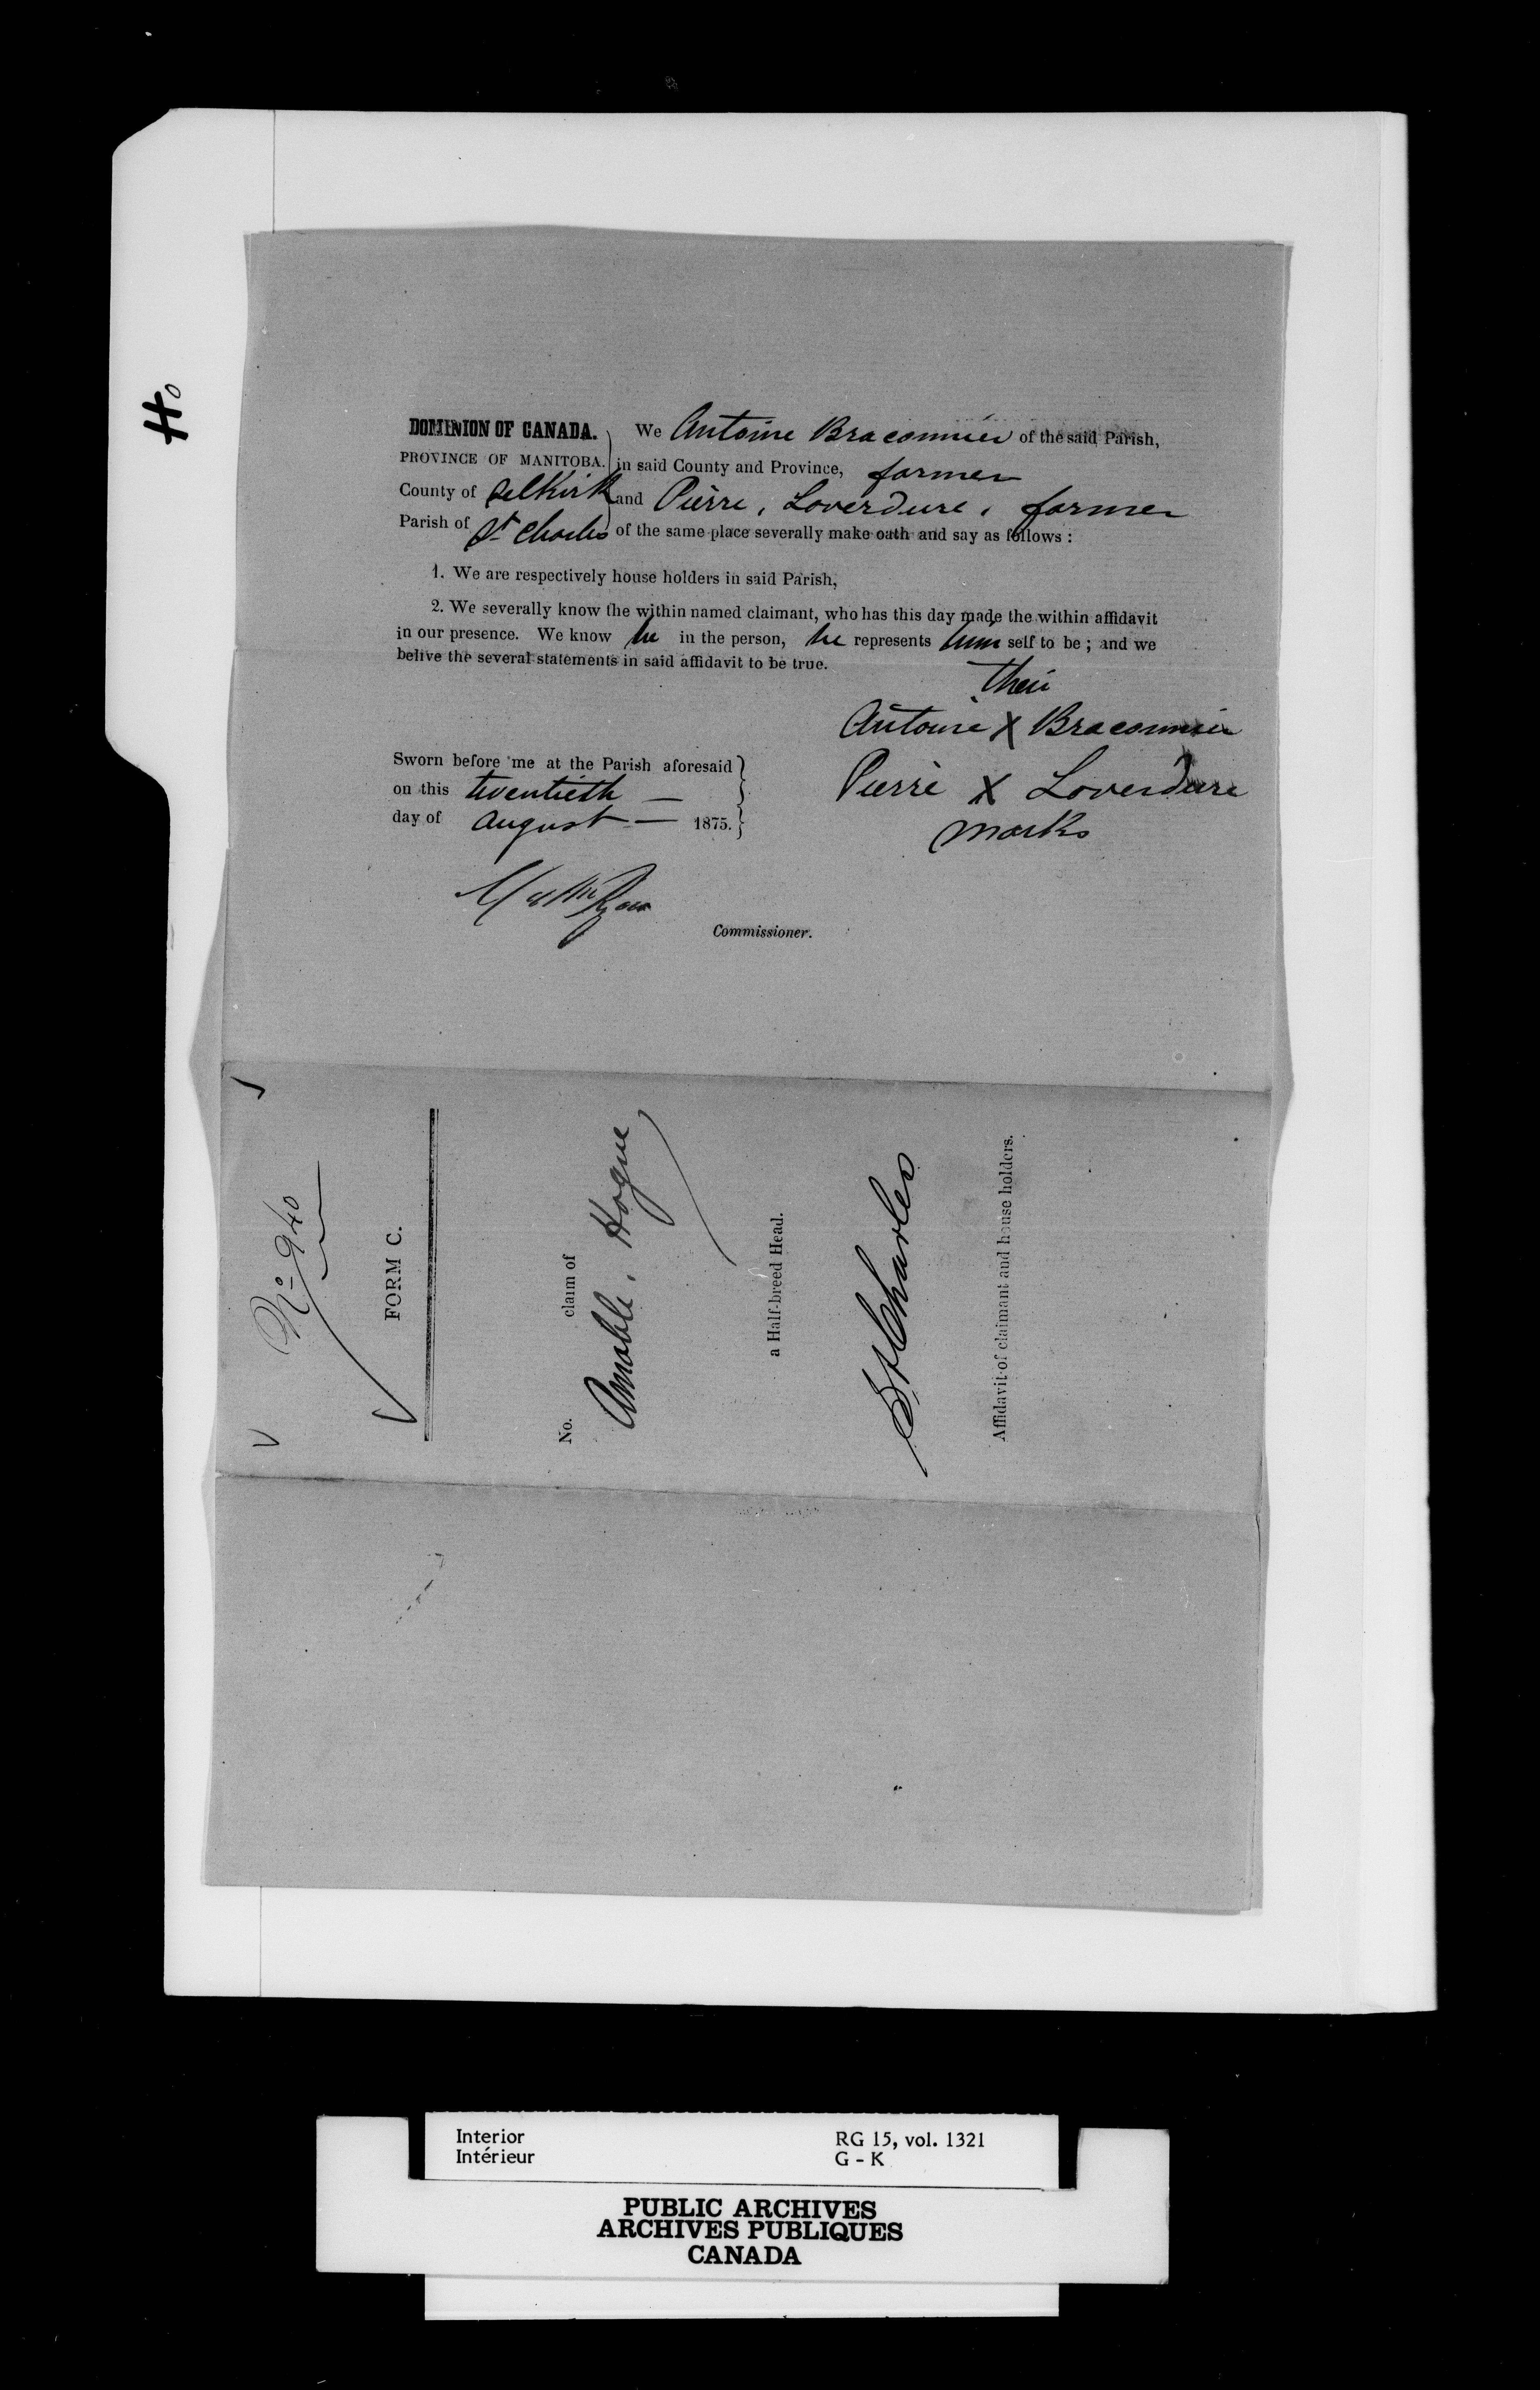 Ho
DOMINION OF CANADA.
PROVINCE OF MANITOBA.
County of Selkirk
Parish of St Charles
We Antoine Braconnier of the said Parish,
in said County and Province, farmer
and Pierre, Loverdure, farmer
of the same place severally make oath and say as follows :
1. We are respectively house holders in said Parish,
2. We severally know the within named claimant, who has this day made the within affidavit
in our presence. We know he in the person, he represents him self to be ; and we
belive the several statements in said affidavit to be true.
their
Antoine X Braconnier
Pierre X Loverdure
marks
Sworn before me at the Parish aforesaid
on this twentieth —
day of August — 1875.
Commissioner.
No 940
FORM C.
No. claim of
Amable, Hogue
a Half-breed Head.
St Charles
Affidavit of claimant and house holders.
Interior
Intérieur
RG 15, vol. 1321
G - K
PUBLIC ARCHIVES
ARCHIVES PUBLIQUES
CANADA